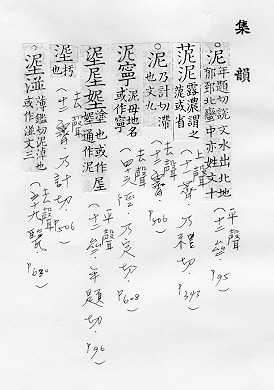 集韻
泥 年題切說文水出北地郁郅北蠻中亦姓文十（平聲．十二齊．P.95）
苨泥 露濃謂之苨或省（上聲．十一薺．乃禮切．P.343）
泥 乃計切滯也文九（去聲．十二霽．P.506）
泥寧 泥母地名或作寧（去聲．四十六徑．乃定切．P.608）
埿 塗也或作 通作泥（平聲．十二齊．年題切．P.96）
埿 杇也（去聲．十二霽．乃計切．P.506）
埿湴 薄鑑切泥淖也或作湴文三（去聲．五十九鑑．P.630）